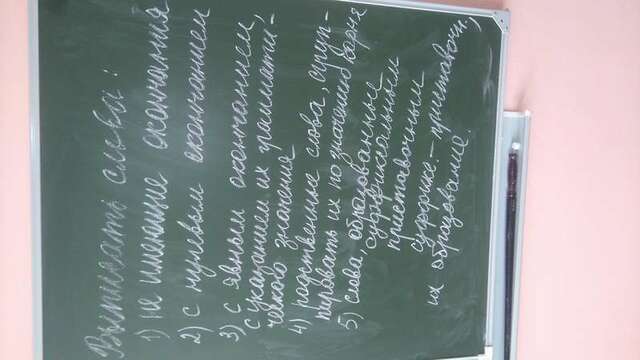 Выписать слова:
1) не имеющие окончания
2) с нулевым окончанием
3) с явным окончанием,
с указанием их граммати-
ческого значения
4) родственные слова, сгруп-
пировать их по значению корня
5) слова, образованные
суффиксальным
приставочным
суффикс.-приставочн.,
их образование.